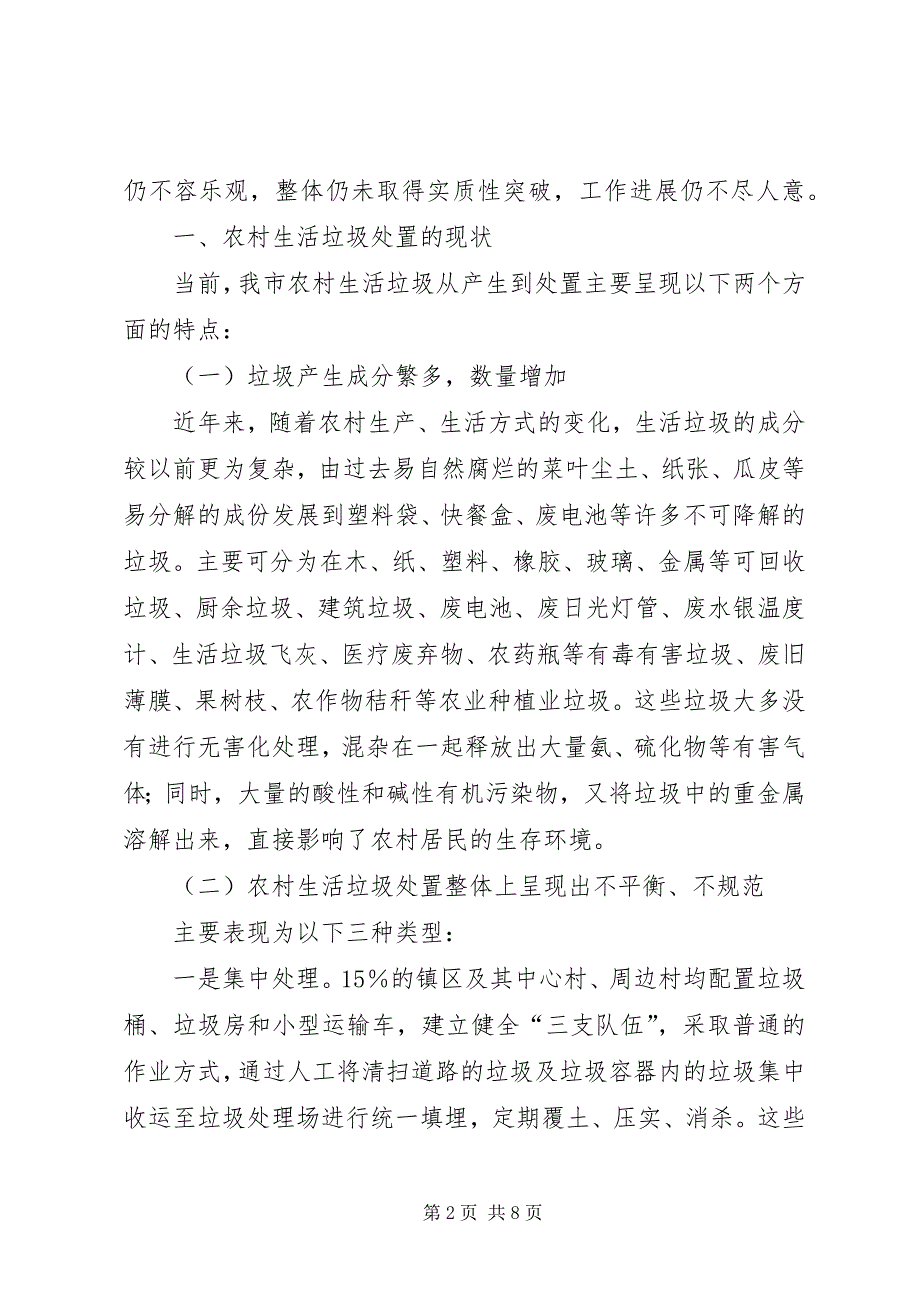 仍不容乐观，整体仍未取得实质性突破，工作进展仍不尽人意。
一、农村生活垃圾处置的现状
当前，我市农村生活垃圾从产生到处置主要呈现以下两个方
面的特点：
（一）垃圾产生成分繁多，数量增加
近年来，随着农村生产、生活方式的变化，生活垃圾的成分
较以前更为复杂，由过去易自然腐烂的菜叶尘土、纸张、瓜皮等
易分解的成份发展到塑料袋、快餐盒、废电池等许多不可降解的
垃圾。主要可分为在木、纸、塑料、橡胶、玻璃、金属等可回收
垃圾、厨余垃圾、建筑垃圾、废电池、废日光灯管、废水银温度
计、生活垃圾飞灰、医疗废弃物、农药瓶等有毒有害垃圾、废旧
薄膜、果树枝、农作物秸秆等农业种植业垃圾。这些垃圾大多没
有进行无害化处理，混杂在一起释放出大量氨、硫化物等有害气
体；同时，大量的酸性和碱性有机污染物，又将垃圾中的重金属
溶解出来，直接影响了农村居民的生存环境。
（二）农村生活垃圾处置整体上呈现出不平衡、不规范
主要表现为以下三种类型：
一是集中处理。15％的镇区及其中心村、周边村均配置垃圾
桶、垃圾房和小型运输车，建立健全“三支队伍”，采取普通的
作业方式，通过人工将清扫道路的垃圾及垃圾容器内的垃圾集中
收运至垃圾处理场进行统一填埋，定期覆土、压实、消杀。这些
第 2 页 共 8 页